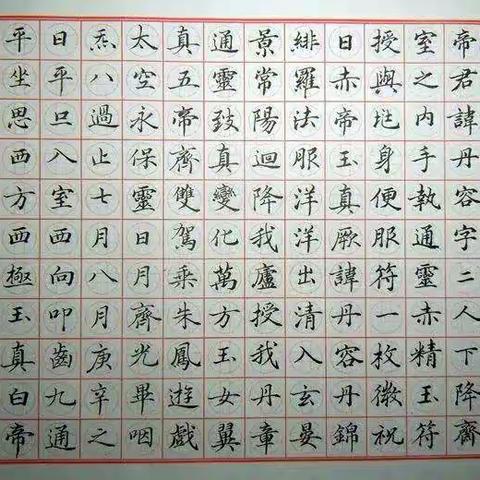 帝君諱丹容字二人下降齋
室之内手執通靈赤精玉符
授與身便服符一枚微祝
日赤帝玉真厥諱丹容丹錦
緋羅法服洋洋出清入玄晏
景常陽迴降我廬授我丹章
通靈致真變化萬方玉女翼
真五帝齊雙駕乘朱鳳遊戲
太空永保靈日月齊光畢咽
炁八過止七月八月庚辛之
日平旦入室西向叩齒九通
平坐思西方西極玉真白帝